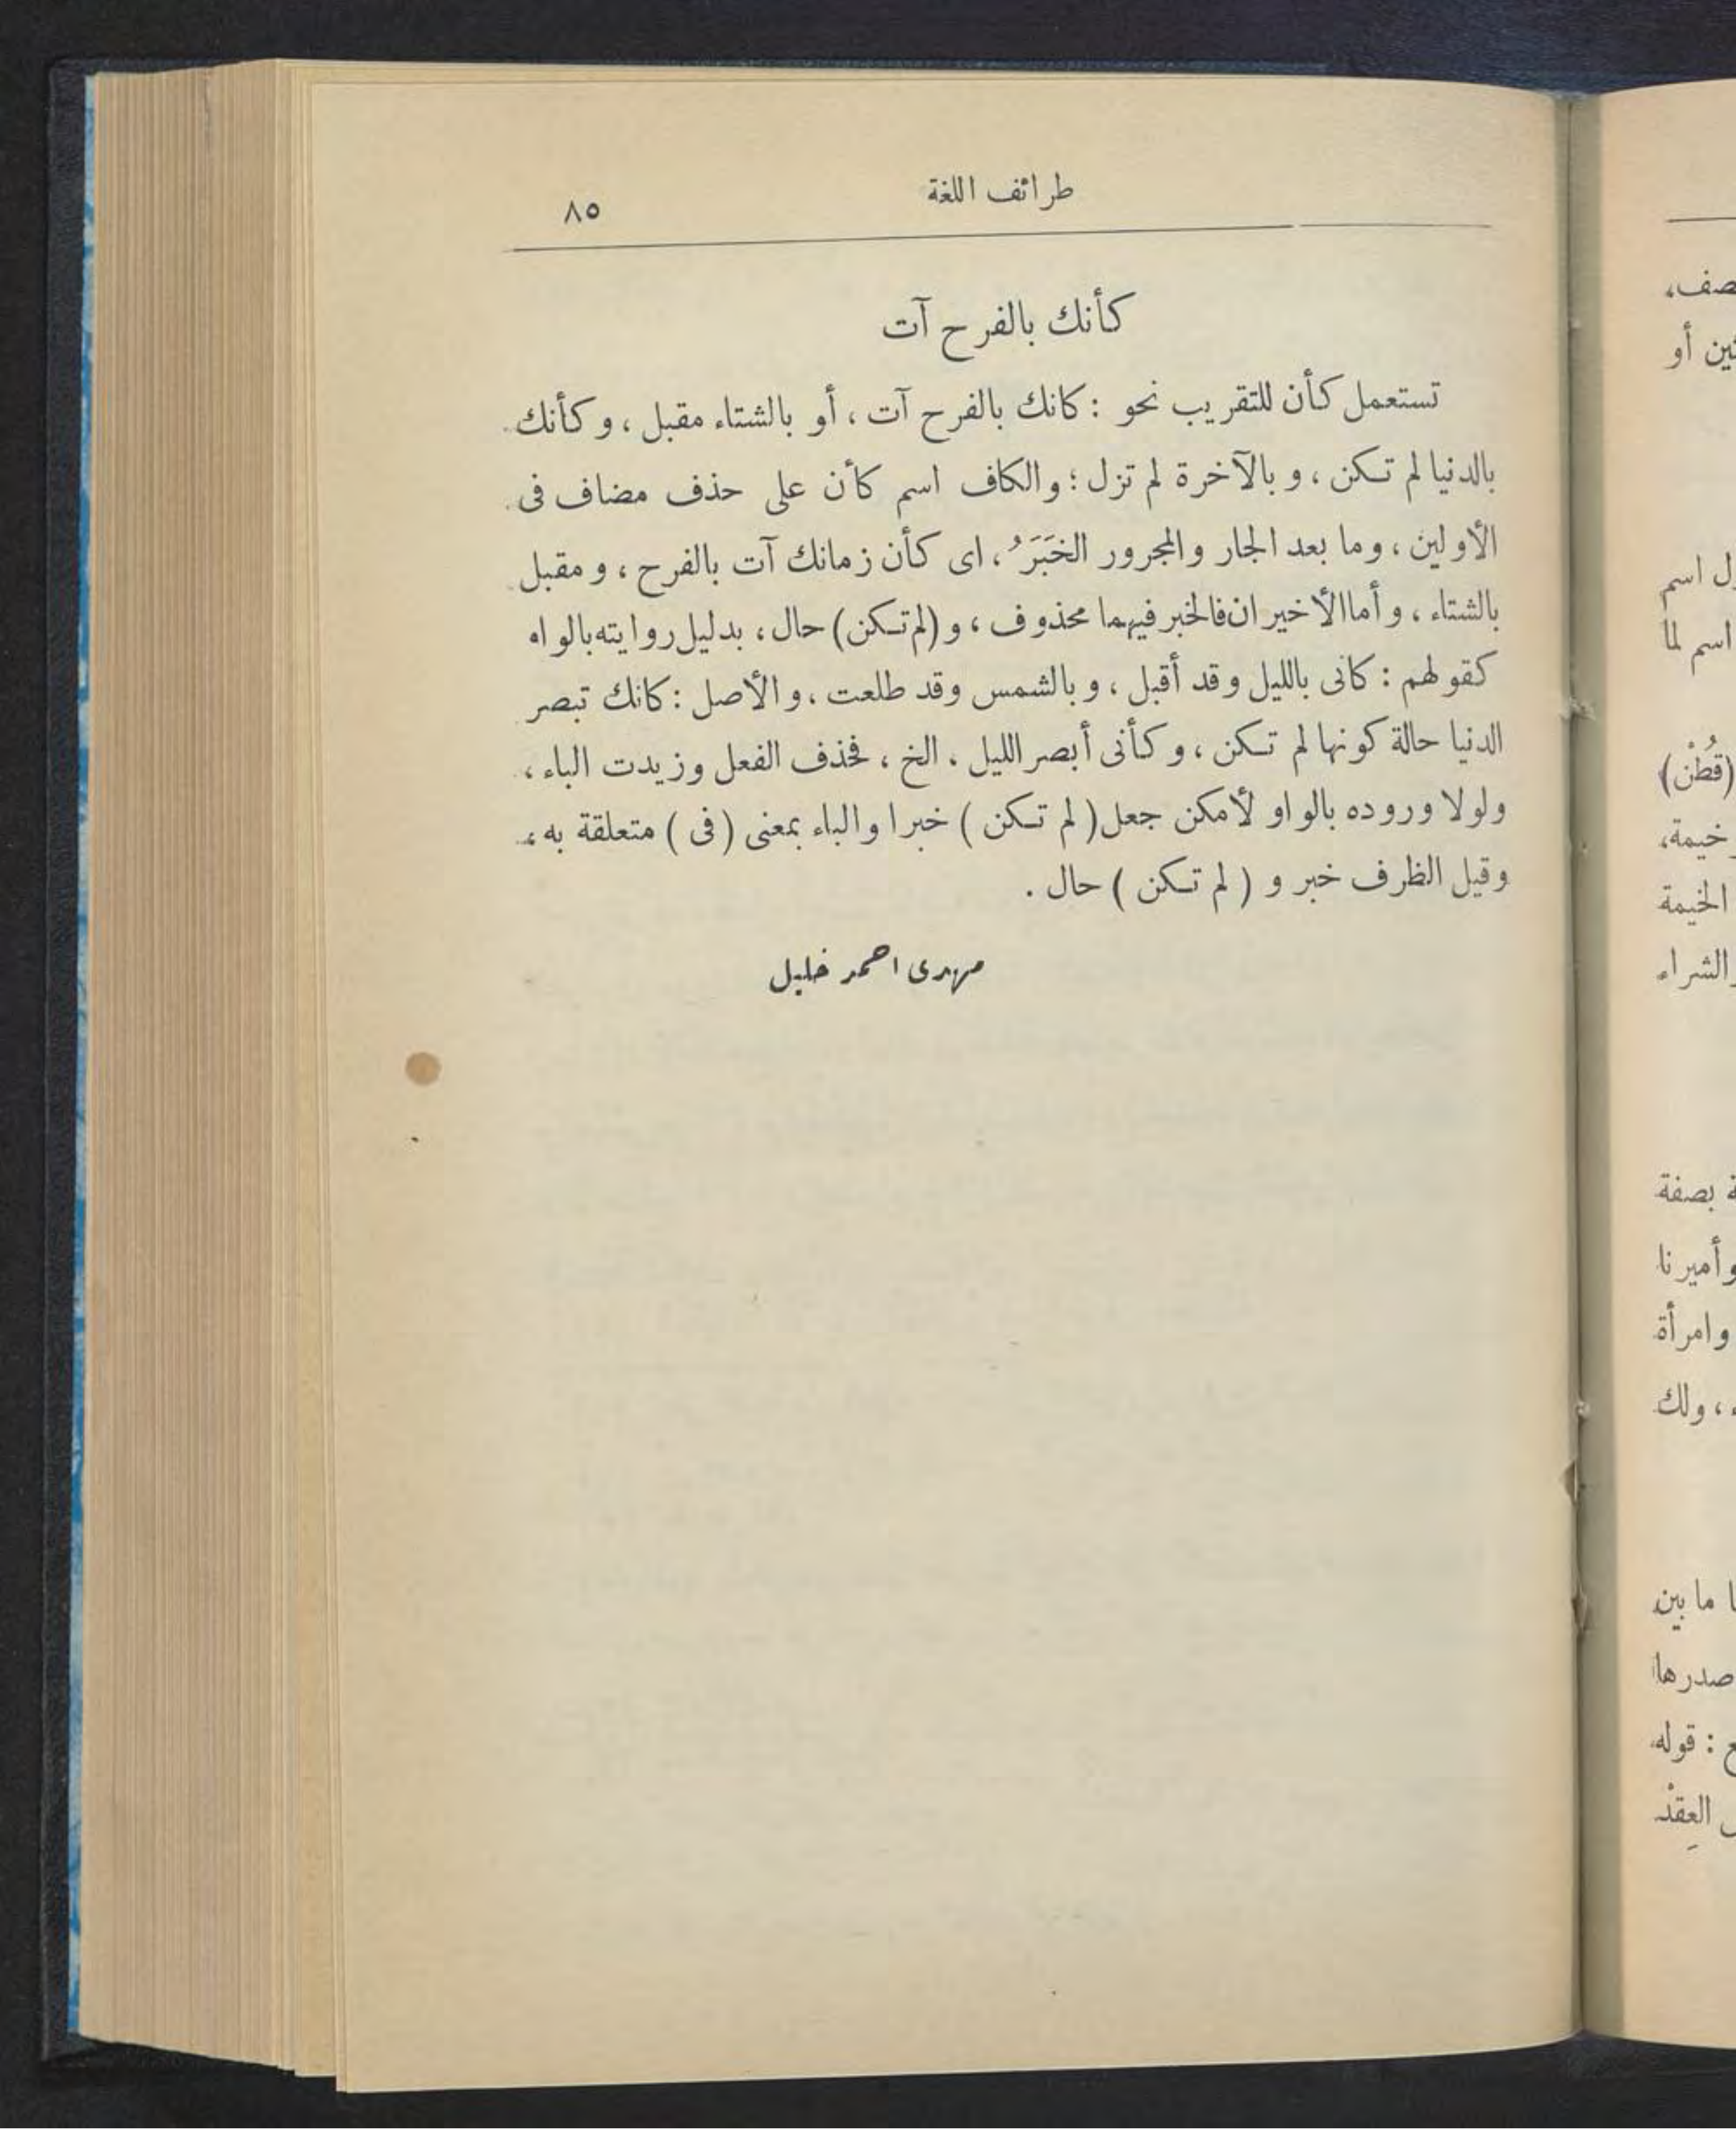 طرائف اللغة
٨٥
كأنك بالفرح آت
تستعمل كأن للتقريب نحو : كانك بالفرح آت ، أو بالشتاء مقبل ، وكأنك
بالدنيا لم تكن ، وبالآخرة لم تزل ؛ والكاف اسم كأن على حذف مضاف فى
الأولين ، وما بعد الجار والمجرور الخَبَرَُ ، اى كأن زمانك آت بالفرح ، ومقبل
بالشتاء ، وأما الأخيران فالخبر فيهما محذوف ، و (لم تكن) حال ، بدليل روايته بالواه
كقولهم : كانى بالليل وقد أقبل ، وبالشمس وقد طلعت ، والأصل : كانك تبصر
الدنيا حالة كونها لم تكن ، وكأنى أبصر الليل ، الخ ، فحذف الفعل وزيدت الباء ،
ولولا وروده بالواو لأمكن جعل ( لم تكن ) خبرا والباء بمعنى ( فى ) متعلقة به ،
وقيل الظرف خبر و ( لم تكن ) حال .
مهدى احمد خليل
صف،
ثين أو
ل اسم
اسم لما
(قُطْن)
خيمة،
الخيمة
الشراء
ة بصفة
وأميرنا
وامرأة
، ولك
ا ما بين
صدرها
ع : قوله
العِقْد